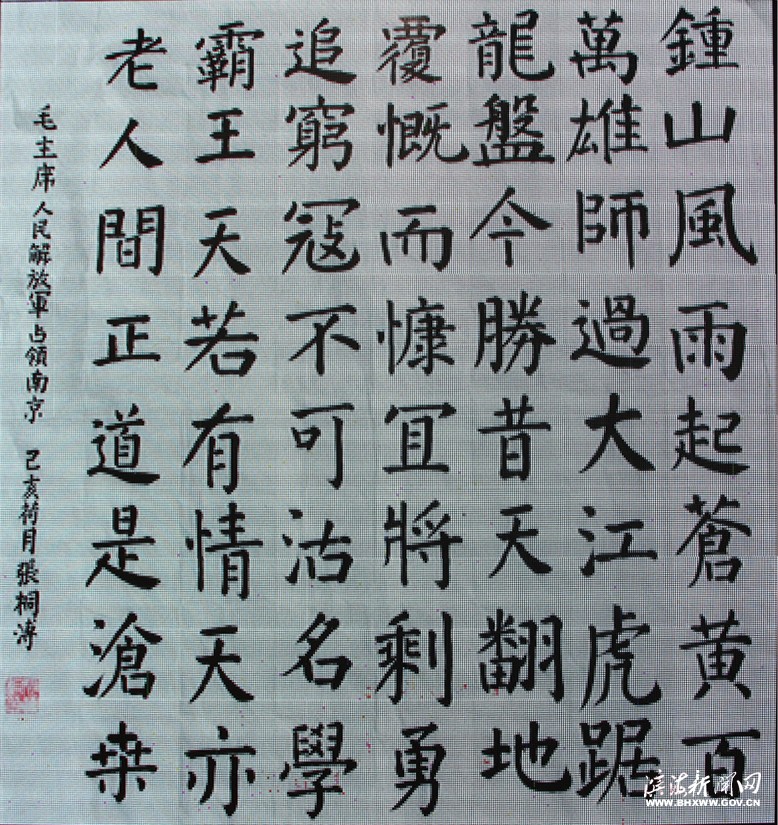 鍾山風雨起蒼黄百
萬雄師過大江虎踞
龍盤今勝昔天翻地
覆慨而慷宜將剩勇
追窮寇不可沽名學
霸王天若有情天亦
老人間正道是滄桒
毛主席人民解放軍占領南京 己亥荷月張桐溥
滨海新闻网
WWW.BHXWW.GOV.CN